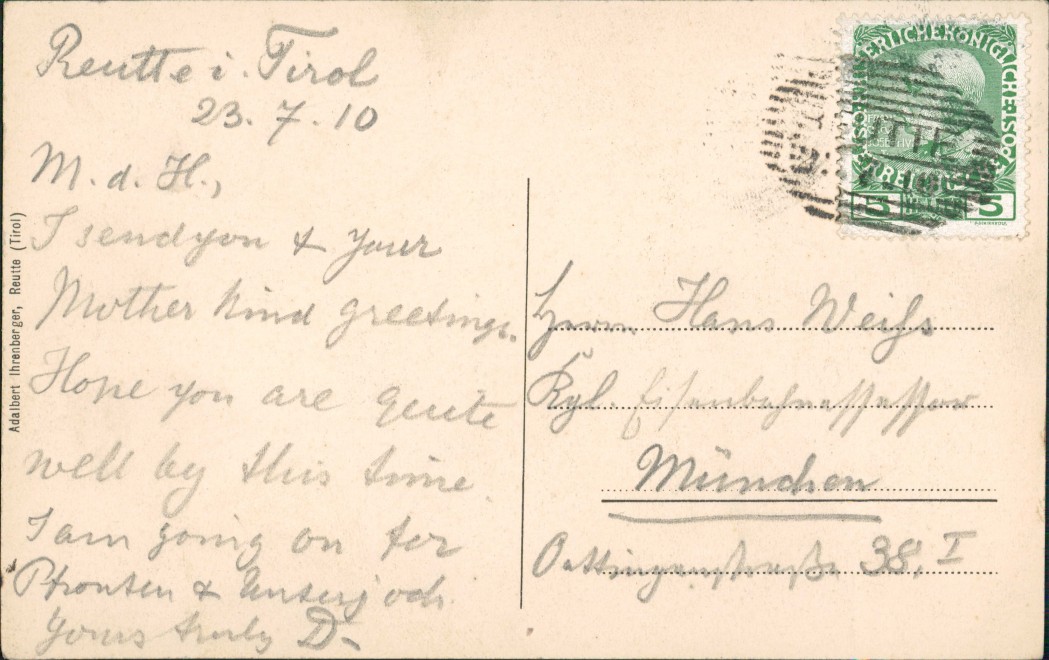 Reutte i. Tirol
23. 7. 10
M. d. H.,
I send you & your
Mother kind greetings.
Hope you are quite
well by this time.
I am going on for
Pfronten & Unterjoch.
Yours truly D-
Adalbert Ihrenberger, Reutte (Tirol)
KAISERLICHE KÖNIGLICHE ÖSTERREICHISCHE POST
5 5
Herrn Hans Weiß
Kgl. Eisenbahnassessor
München
Oettingenstraße 38, I